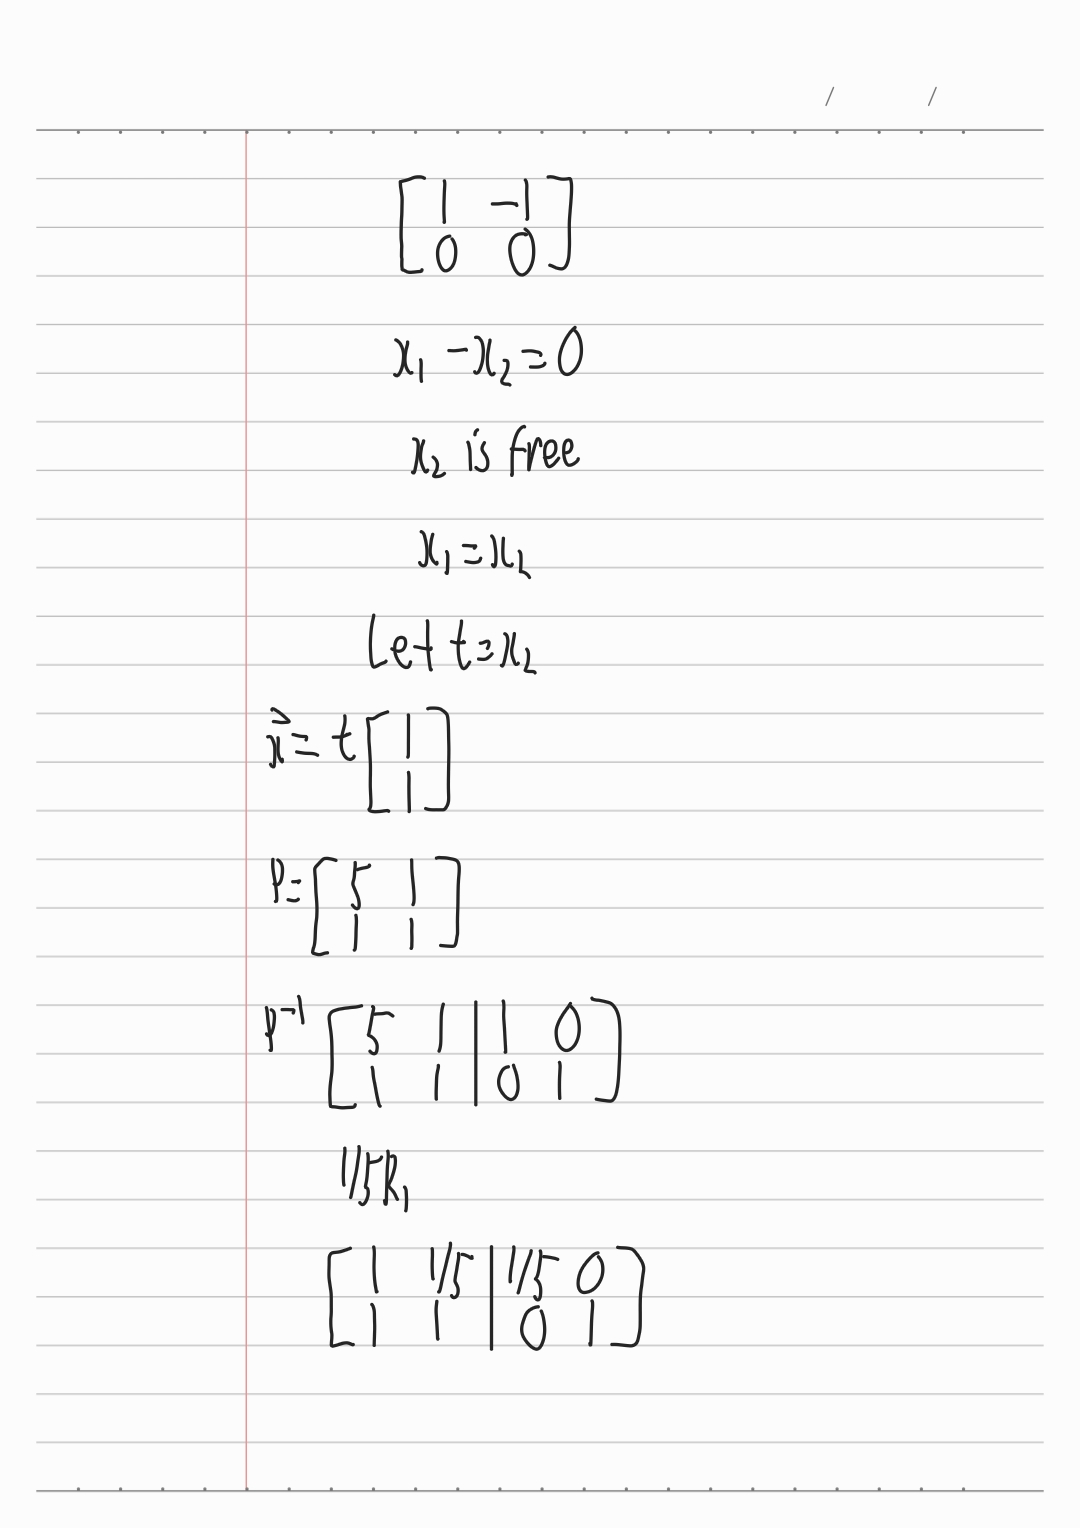 / /
[1 -1]
[0 0]
x₁ - x₂ = 0
x₂ is free
x₁ = x₂
Let t = x₂
x⃗ = t [1]
[1]
P = [5 1]
[1 1]
P⁻¹ [5 1 | 1 0]
[1 1 | 0 1]
1/5R₁
[1 1/5 | 1/5 0]
[1 1 | 0 1]